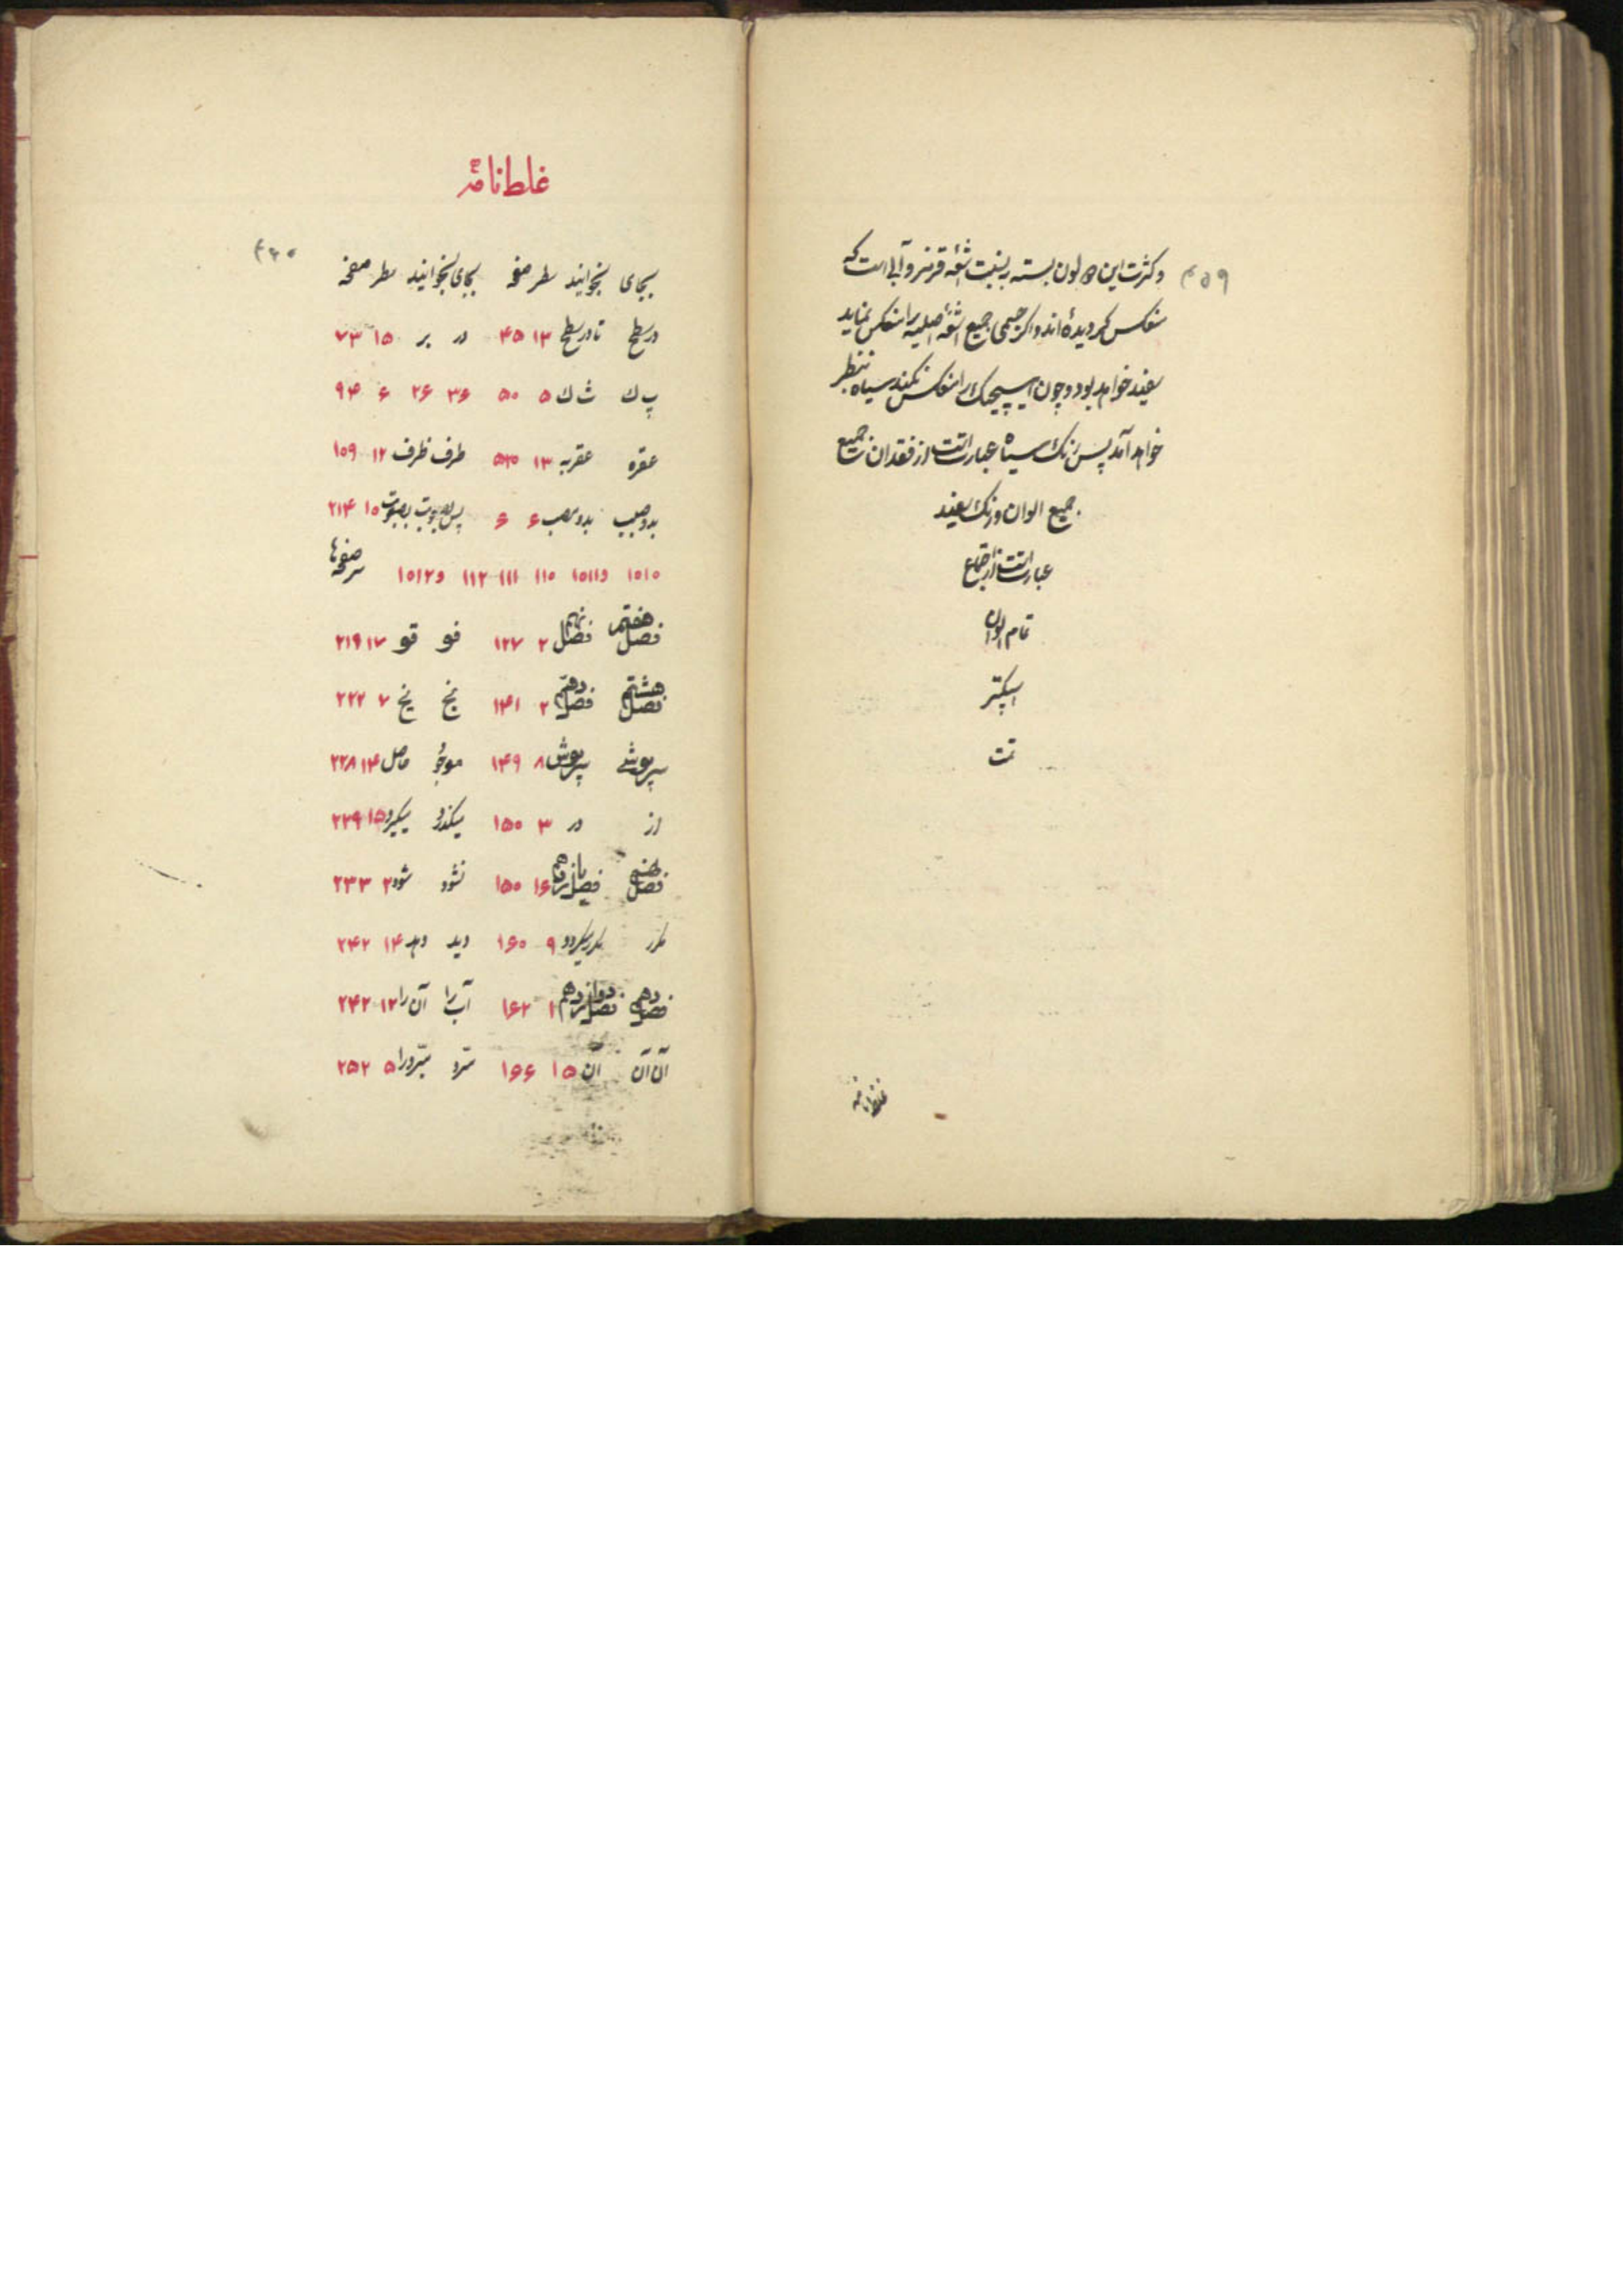 ۴۵۹
وکثرت این لون بسته بنسبت اشعهٔ قرمز و آبی است که
منعکس گردیده‌اند و اگر جسمی جمیع اشعهٔ اصلیه را منعکس نماید
سفید خواهد بود و چون هیچیک را منعکس نکند سیاه بنظر
خواهد آمد پس رنگ سیاه عبارتست از فقدان جمیع
جمیع الوان و رنگ سفید
عبارتست از اجتماع
تمام الوان
اسپکتر
تمت
غلطنامه
غلطنامهٔ
۴۶۰
بجای بخوانید سطر صفحه بجای بخوانید سطر صفحه
در سطح تا در سطح ۱۳ ۴۵ در بر ۱۵ ۷۳
پ ك ث ك ۵ ۵۰ ۳۶ ۲۶ ۶ ۹۴
عقره عقربه ۱۳ طرف ظرف ۱۲ ۱۵۹
۶ ۶ ۱۵ ۲۱۴
۱۱۰ ۱۱۱ ۱۱۲ سرصفحه‌ها
فصل هفتم فصل نهم ۲ ۱۲۷ فو قو ۱۷ ۲۱۹
فصل هشتم فصل دهم ۲ ۱۴۱ نج یخ ۷ ۲۲۲
سرپوشی سرپوش ۸ ۱۴۹ موجود حاصل ۱۴ ۲۲۸
از در ۳ ۱۵۰ میکند میگیرد ۱۵ ۲۲۹
فصل نهم فصل یازدهم ۱۶ ۱۵۰ نشود شود ۲ ۲۳۳
۹ ۱۶۰ دید دهد ۱۴ ۲۴۲
فصل دهم فصل دوازدهم ۱ ۱۶۲ آب را آن را ۱۲ ۲۴۲
آن آن آن ۱۵ ۱۶۶ ۵ ۲۵۲